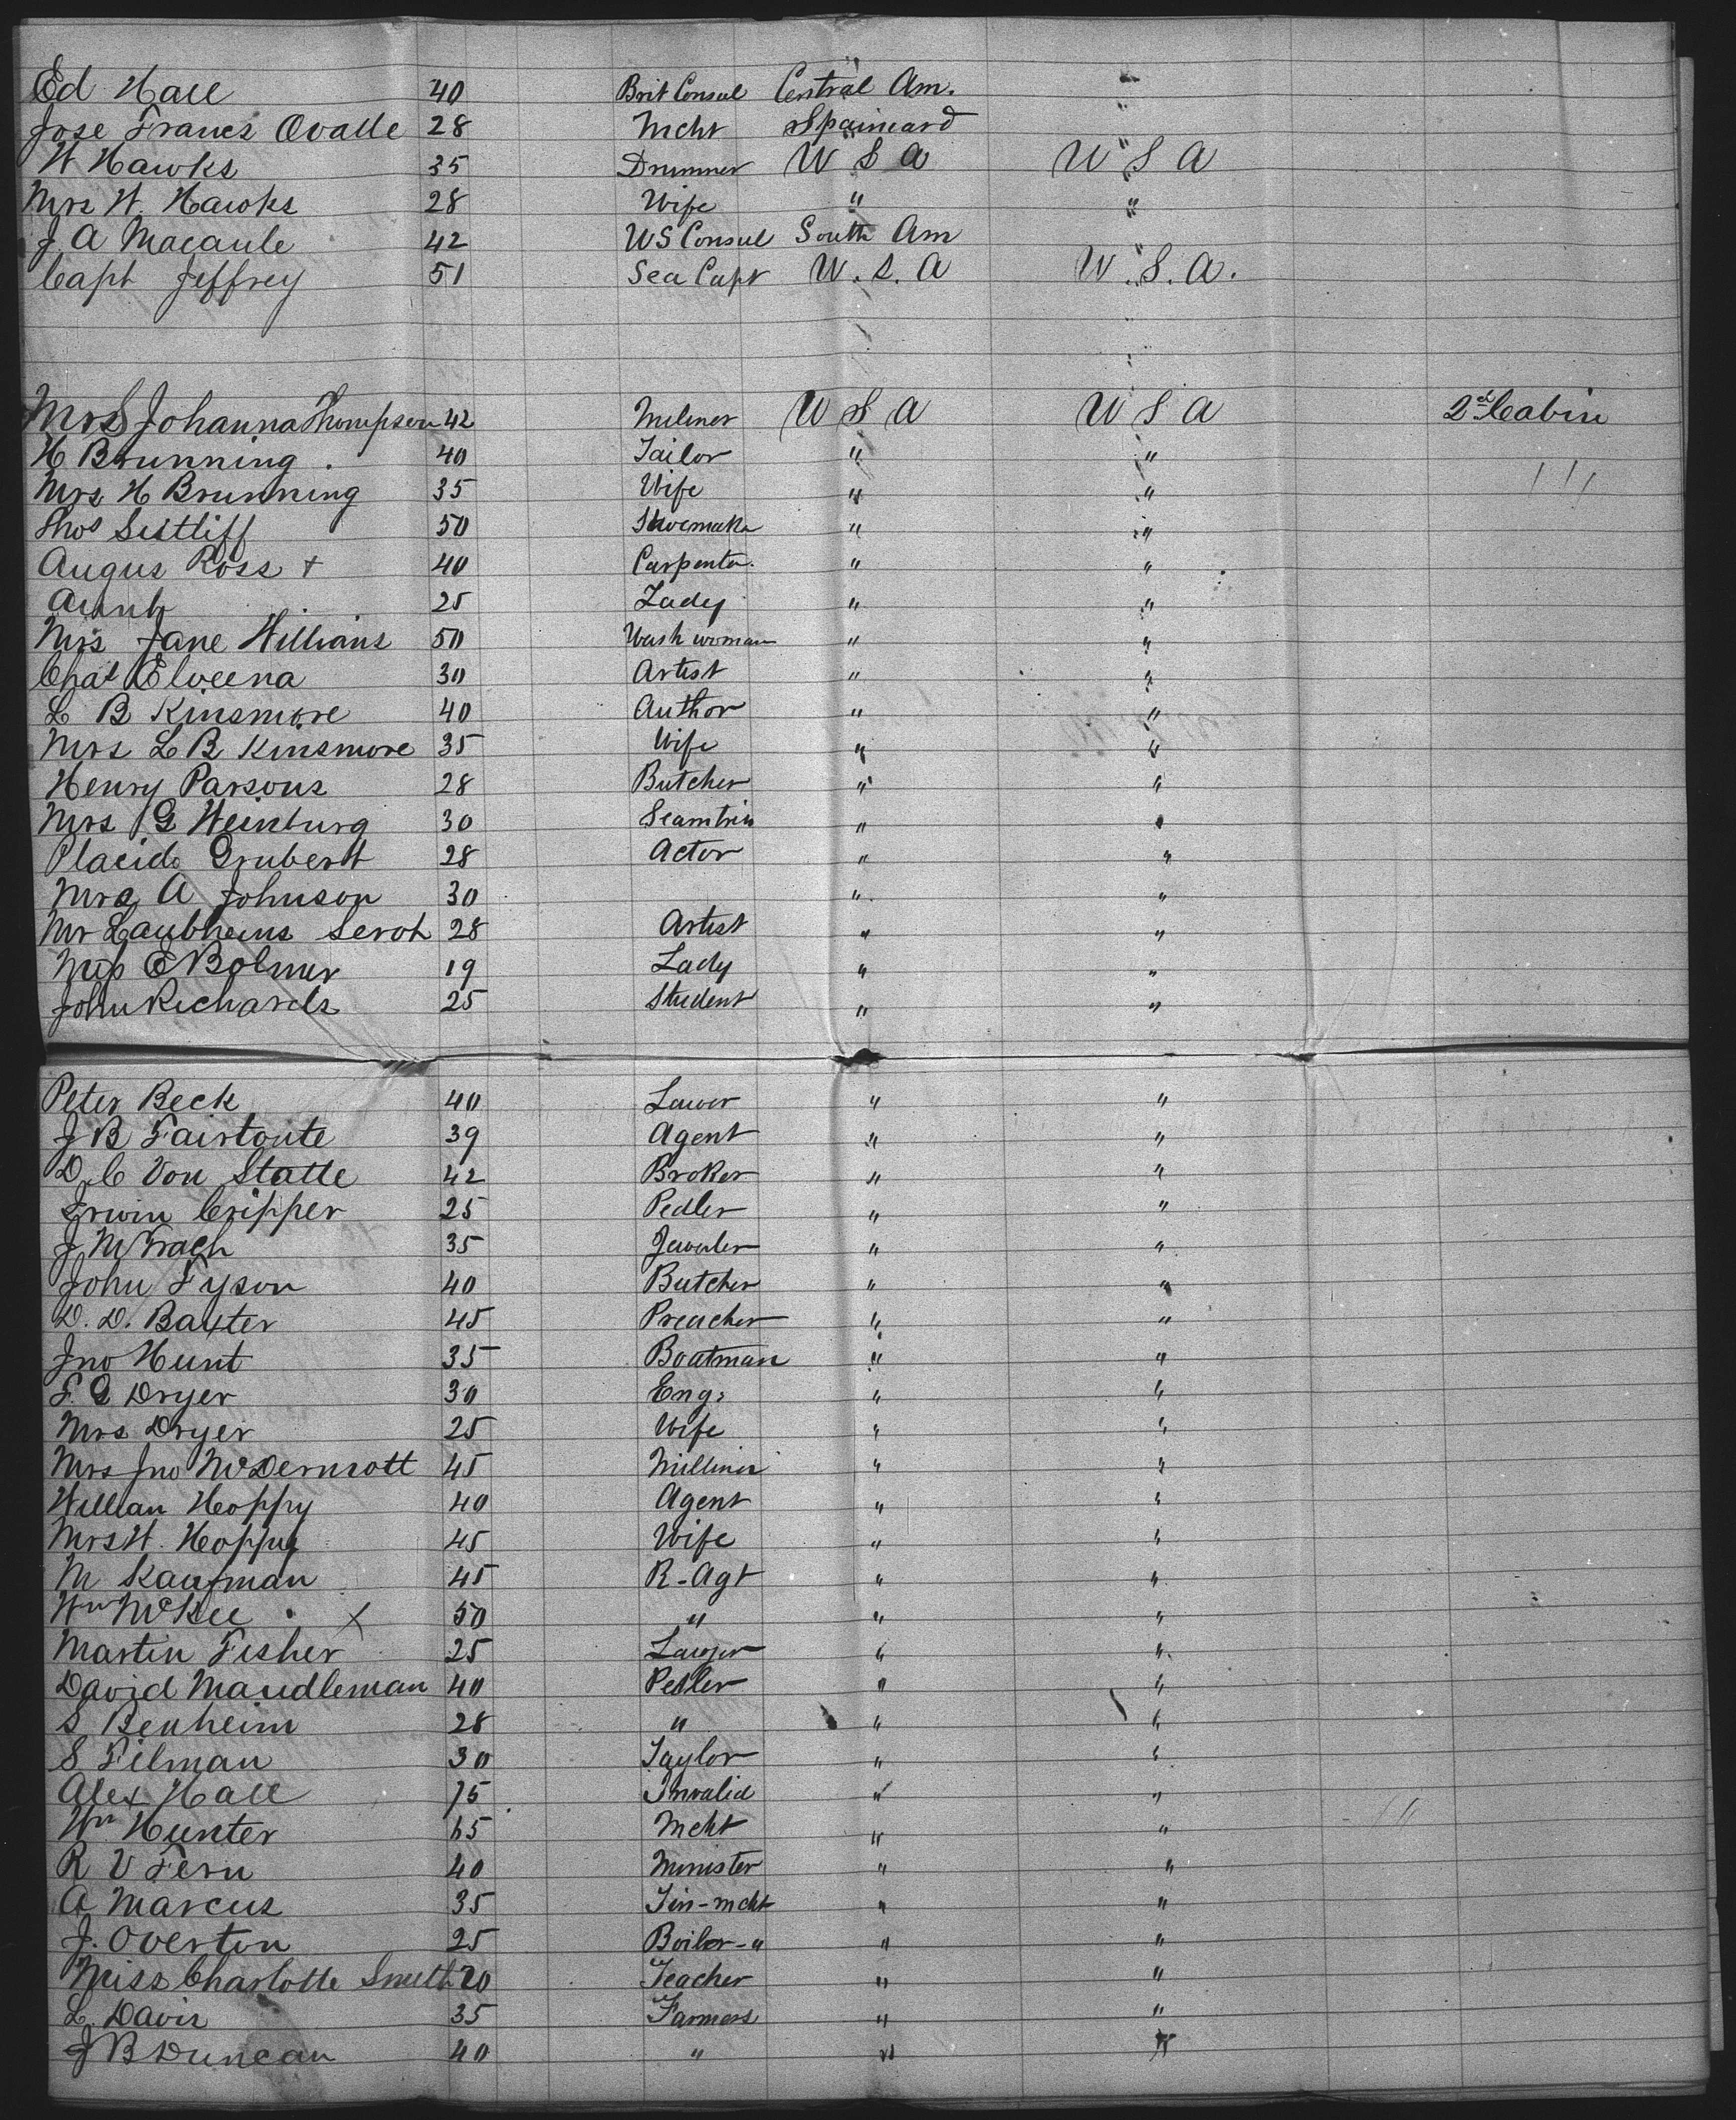 Ed Hall 40 Brit Consul Central Am. "
Jose Frances Ovalle 28 Mcht Spaniard "
W Hawks 35 Drummer U S A U S A
Mrs W. Hawks 28 Wife " "
J. A Macaule 42 US Consul South Am "
Capt Jeffrey 51 Sea Capt U. S. A U. S. A.
Mrs Johanna Thompson 42 Milener U S A U S A 2d Cabin
H Brunning . 40 Tailor " "
Mrs H Brunning 35 Wife " "
Thos Sistliff 50 Shoemaker " "
Augus Ross + 40 Carpenter. " "
Aunt 25 Lady " "
Mrs Jane Williams 50 Wash woman " "
Chas Elveena 30 Artist " "
L B Kinsmore 40 Author " "
Mrs L B Kinsmore 35 Wife " "
Henry Parsons 28 Butcher " "
Mrs G Weinburg 30 Seamtris " "
Placide Grubert 28 Actor " "
Mrs A Johnson 30 " "
Mr Laubheins Seroh 28 Artist " "
Miss E Bolmer 19 Lady " "
John Richards 25 Student " "
Peter Beck 40 Lawer " "
J B Fairtoute 39 Agent " "
D. C Von Statte 42 Broker " "
Irwin Cripper 25 Pedler " "
J McGrach 35 Jaweler " "
John Tyson 40 Butcher " "
D. D. Baxter 45 Preacher " "
Jno Hunt 35 Boatman " "
F. G Dryer 30 Engr " "
Mrs Dryer 25 Wife " "
Mrs Jno McDermott 45 Milliner " "
William Hoppy 40 Agent " "
Mrs W. Hoppy 45 Wife " "
M Kaufman 45 R-Agt " "
Wm McKee X 50 " " "
Martin Fisher 25 Lawyer " "
David Maudleman 40 Pedler " "
S Benheim 28 " " "
S Filman 30 Taylor " "
Alex Hall 75 Invalid " "
Wm Hunter 65 Mcht " "
R V Fern 40 Minister " "
A Marcus 35 Tin-mcht " "
J. Overton 25 Boiler-" " "
Miss Charlotte Smith 20 Teacher " "
L. Davis 35 Farmers " "
J B Duncan 40 " " "